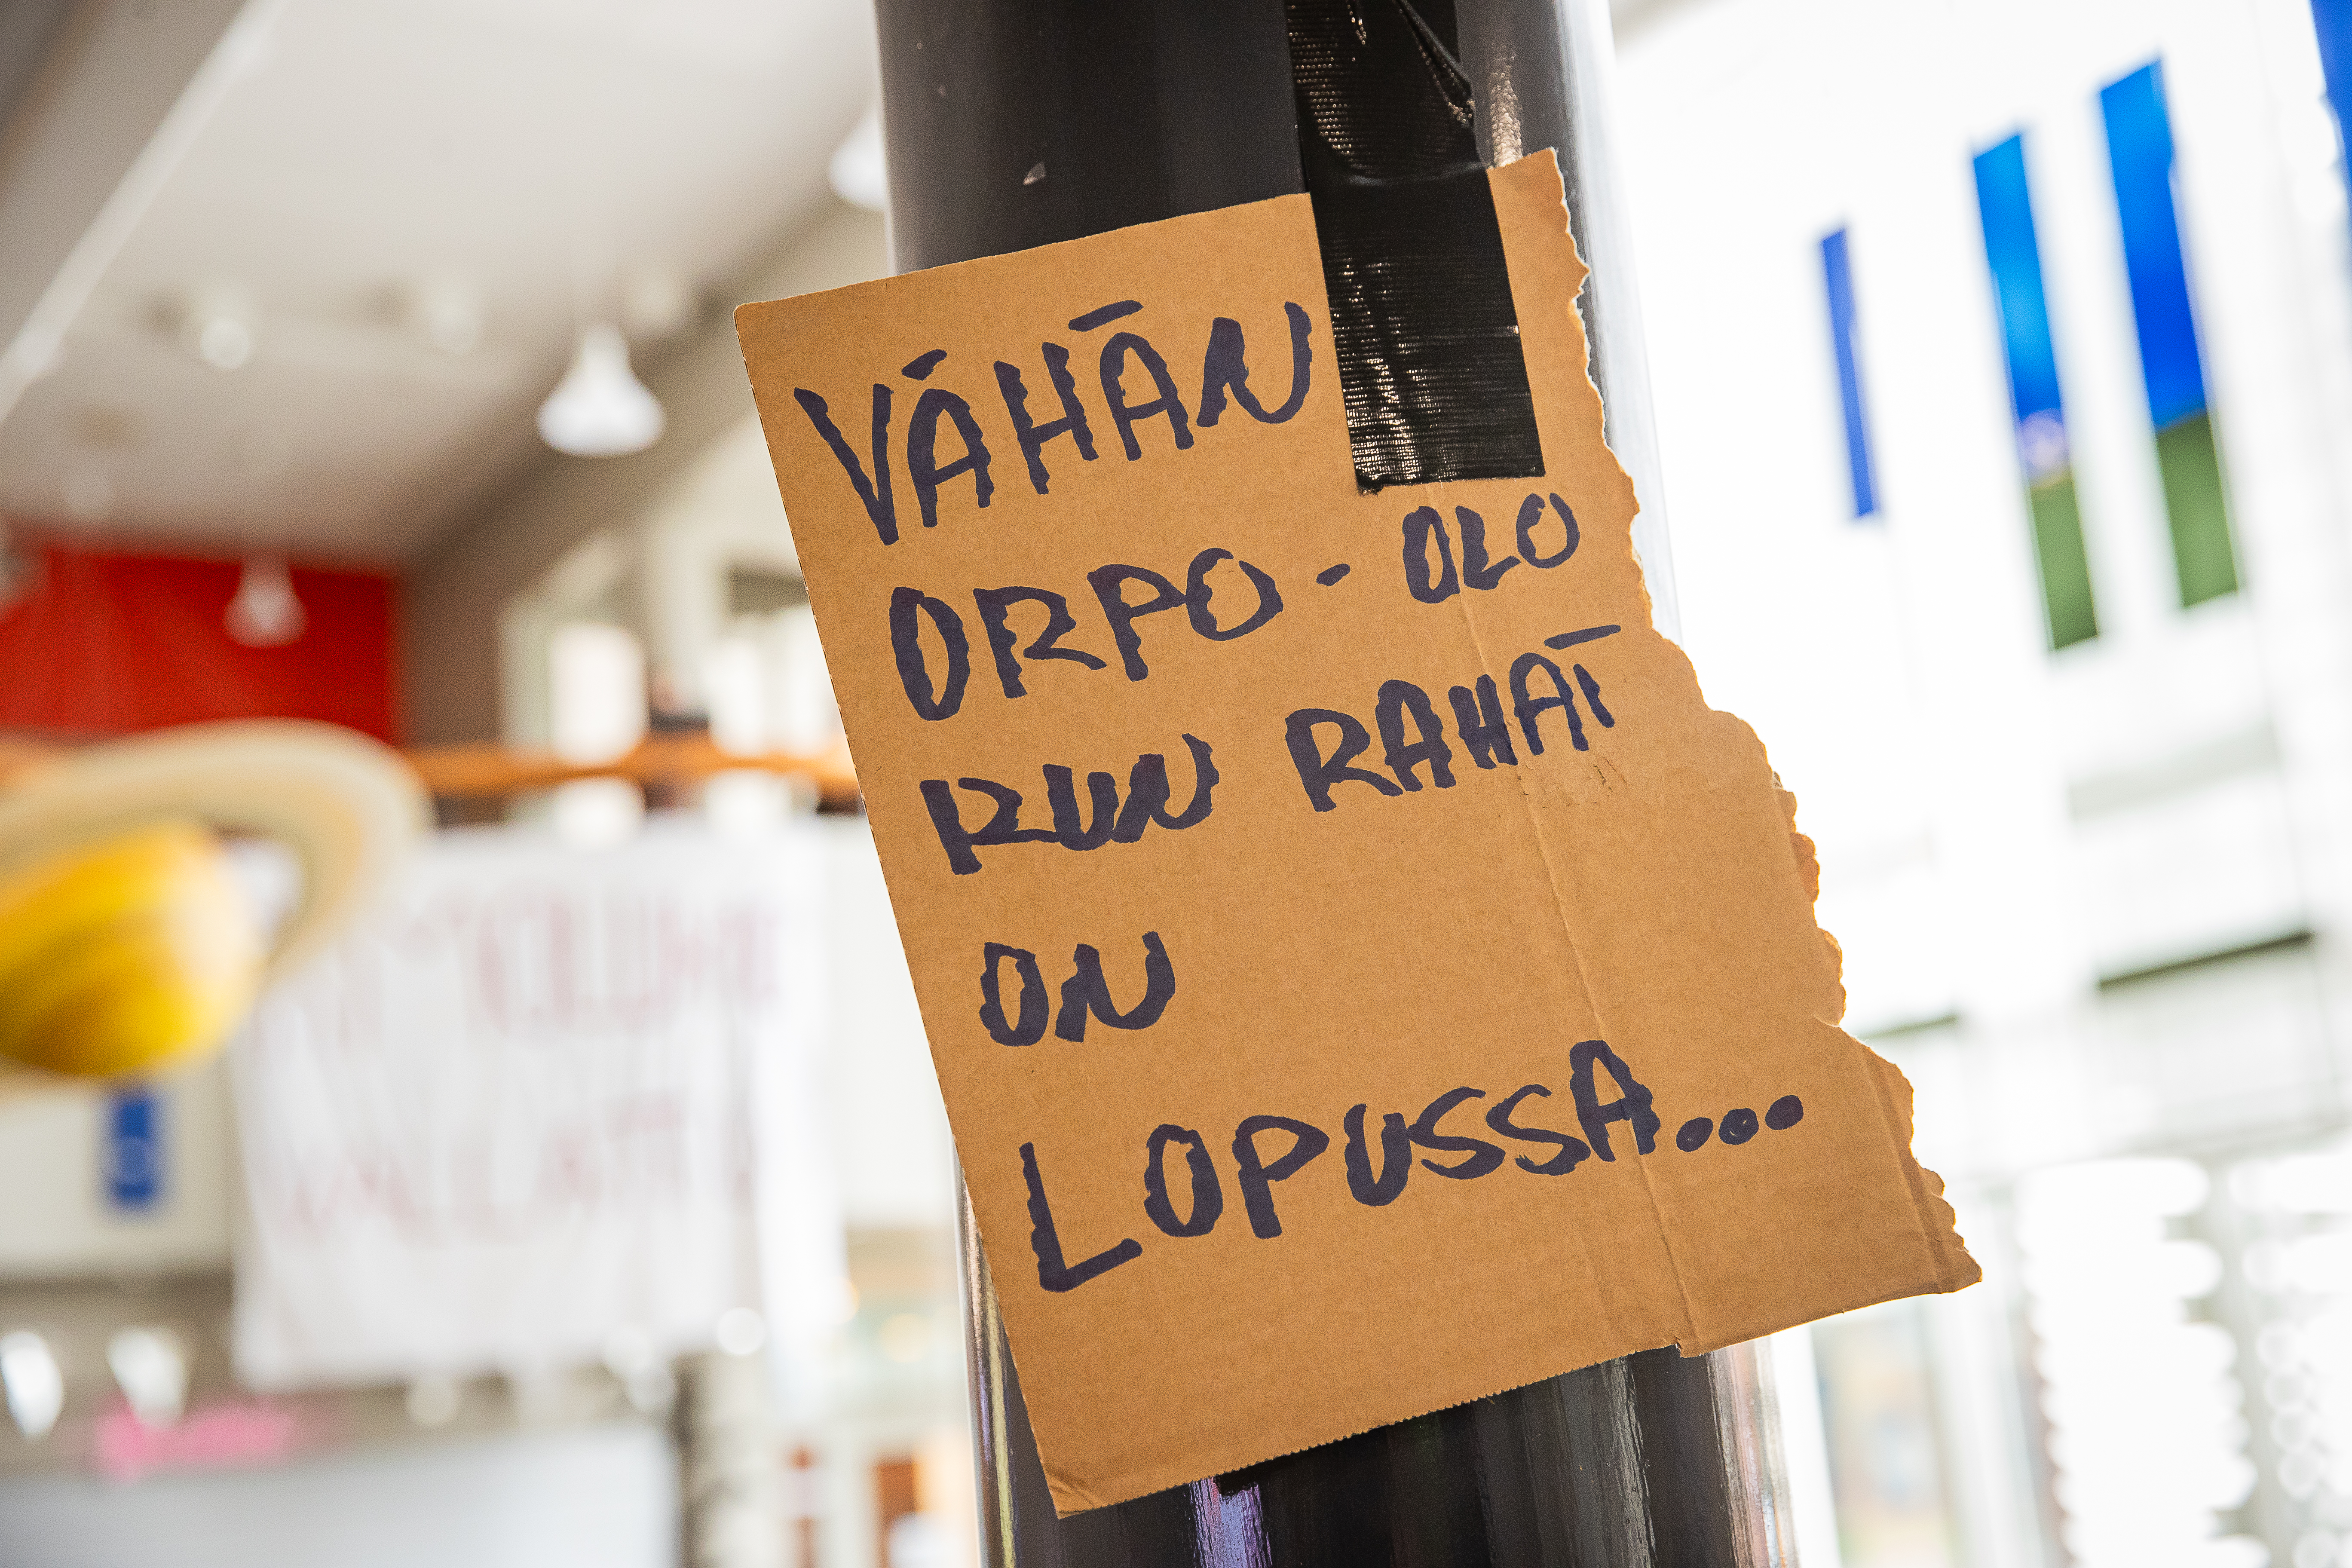 VÄHÄN
ORPO-OLO
KUN RAHAT
ON
LOPUSSA...